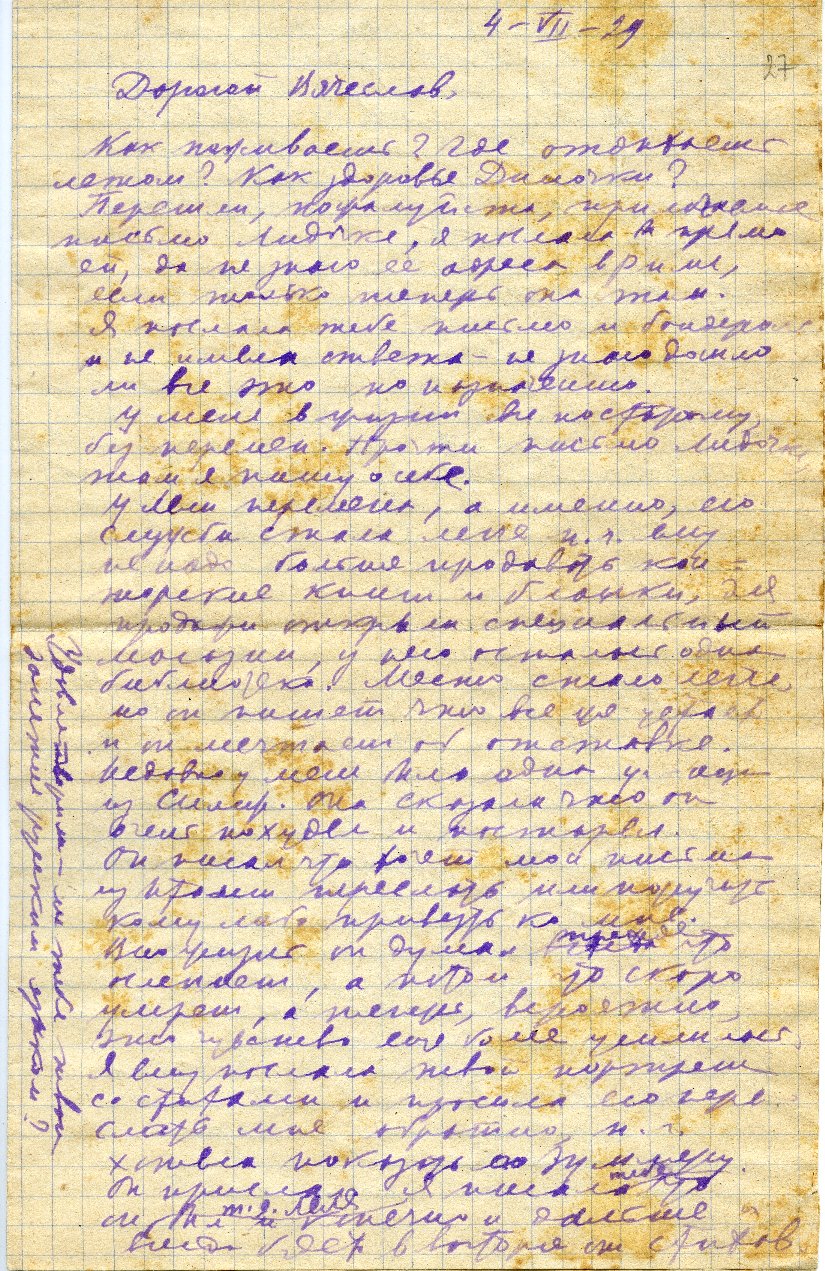 4-VII-29
27
Дорогой Вячеслав,
Как поживаешь? Где отдыхаешь
летом? Как здоровье Димочки?
Перешли, пожалуйста, прилагаемое
письмо Лидочке, я послала бы прямо
ей, да не знаю её адреса в Риме,
если только теперь она там.
Я послала тебе письмо и бандероль
и не имела ответа – не знаю дошло
ли все это по назначению.
У меня в жизни все по старому,
без перемен. Прочти письмо Лидочке,
там я пишу о себе.
У Лели перемена, а именно, его
служба стала легче п. ч. ему
не надо больше продавать кан-
торские книги и бланки, для
продажи открыли специальный
магазин, у него осталась одна
библиотека. Место стало легче,
но он пишет что все же устает
и он мечтает об отставке.
Недавно у меня была одна
из Симф. Она сказала что он
очень похудел и постарел.
Он писал что хочет мои письма
из Италии переслать или поручить
кому либо привезть ко мне.
Всю жизнь он думал прежде что
ослепнет, а потом что скоро
умрет, а теперь, вероятно,
это чувство еще более усилилось.
Я ему послала твой портрет
со стихами и просила его пере-
слать мне обратно, п. ч.
хотела показать его Зуммеру.
Он прислал. Я писала тебе что
он был т. е. Леля и конечно и дальше
будет в восторге от стихов
Удовлетворила-ли тебя твои
занятия русским языком?